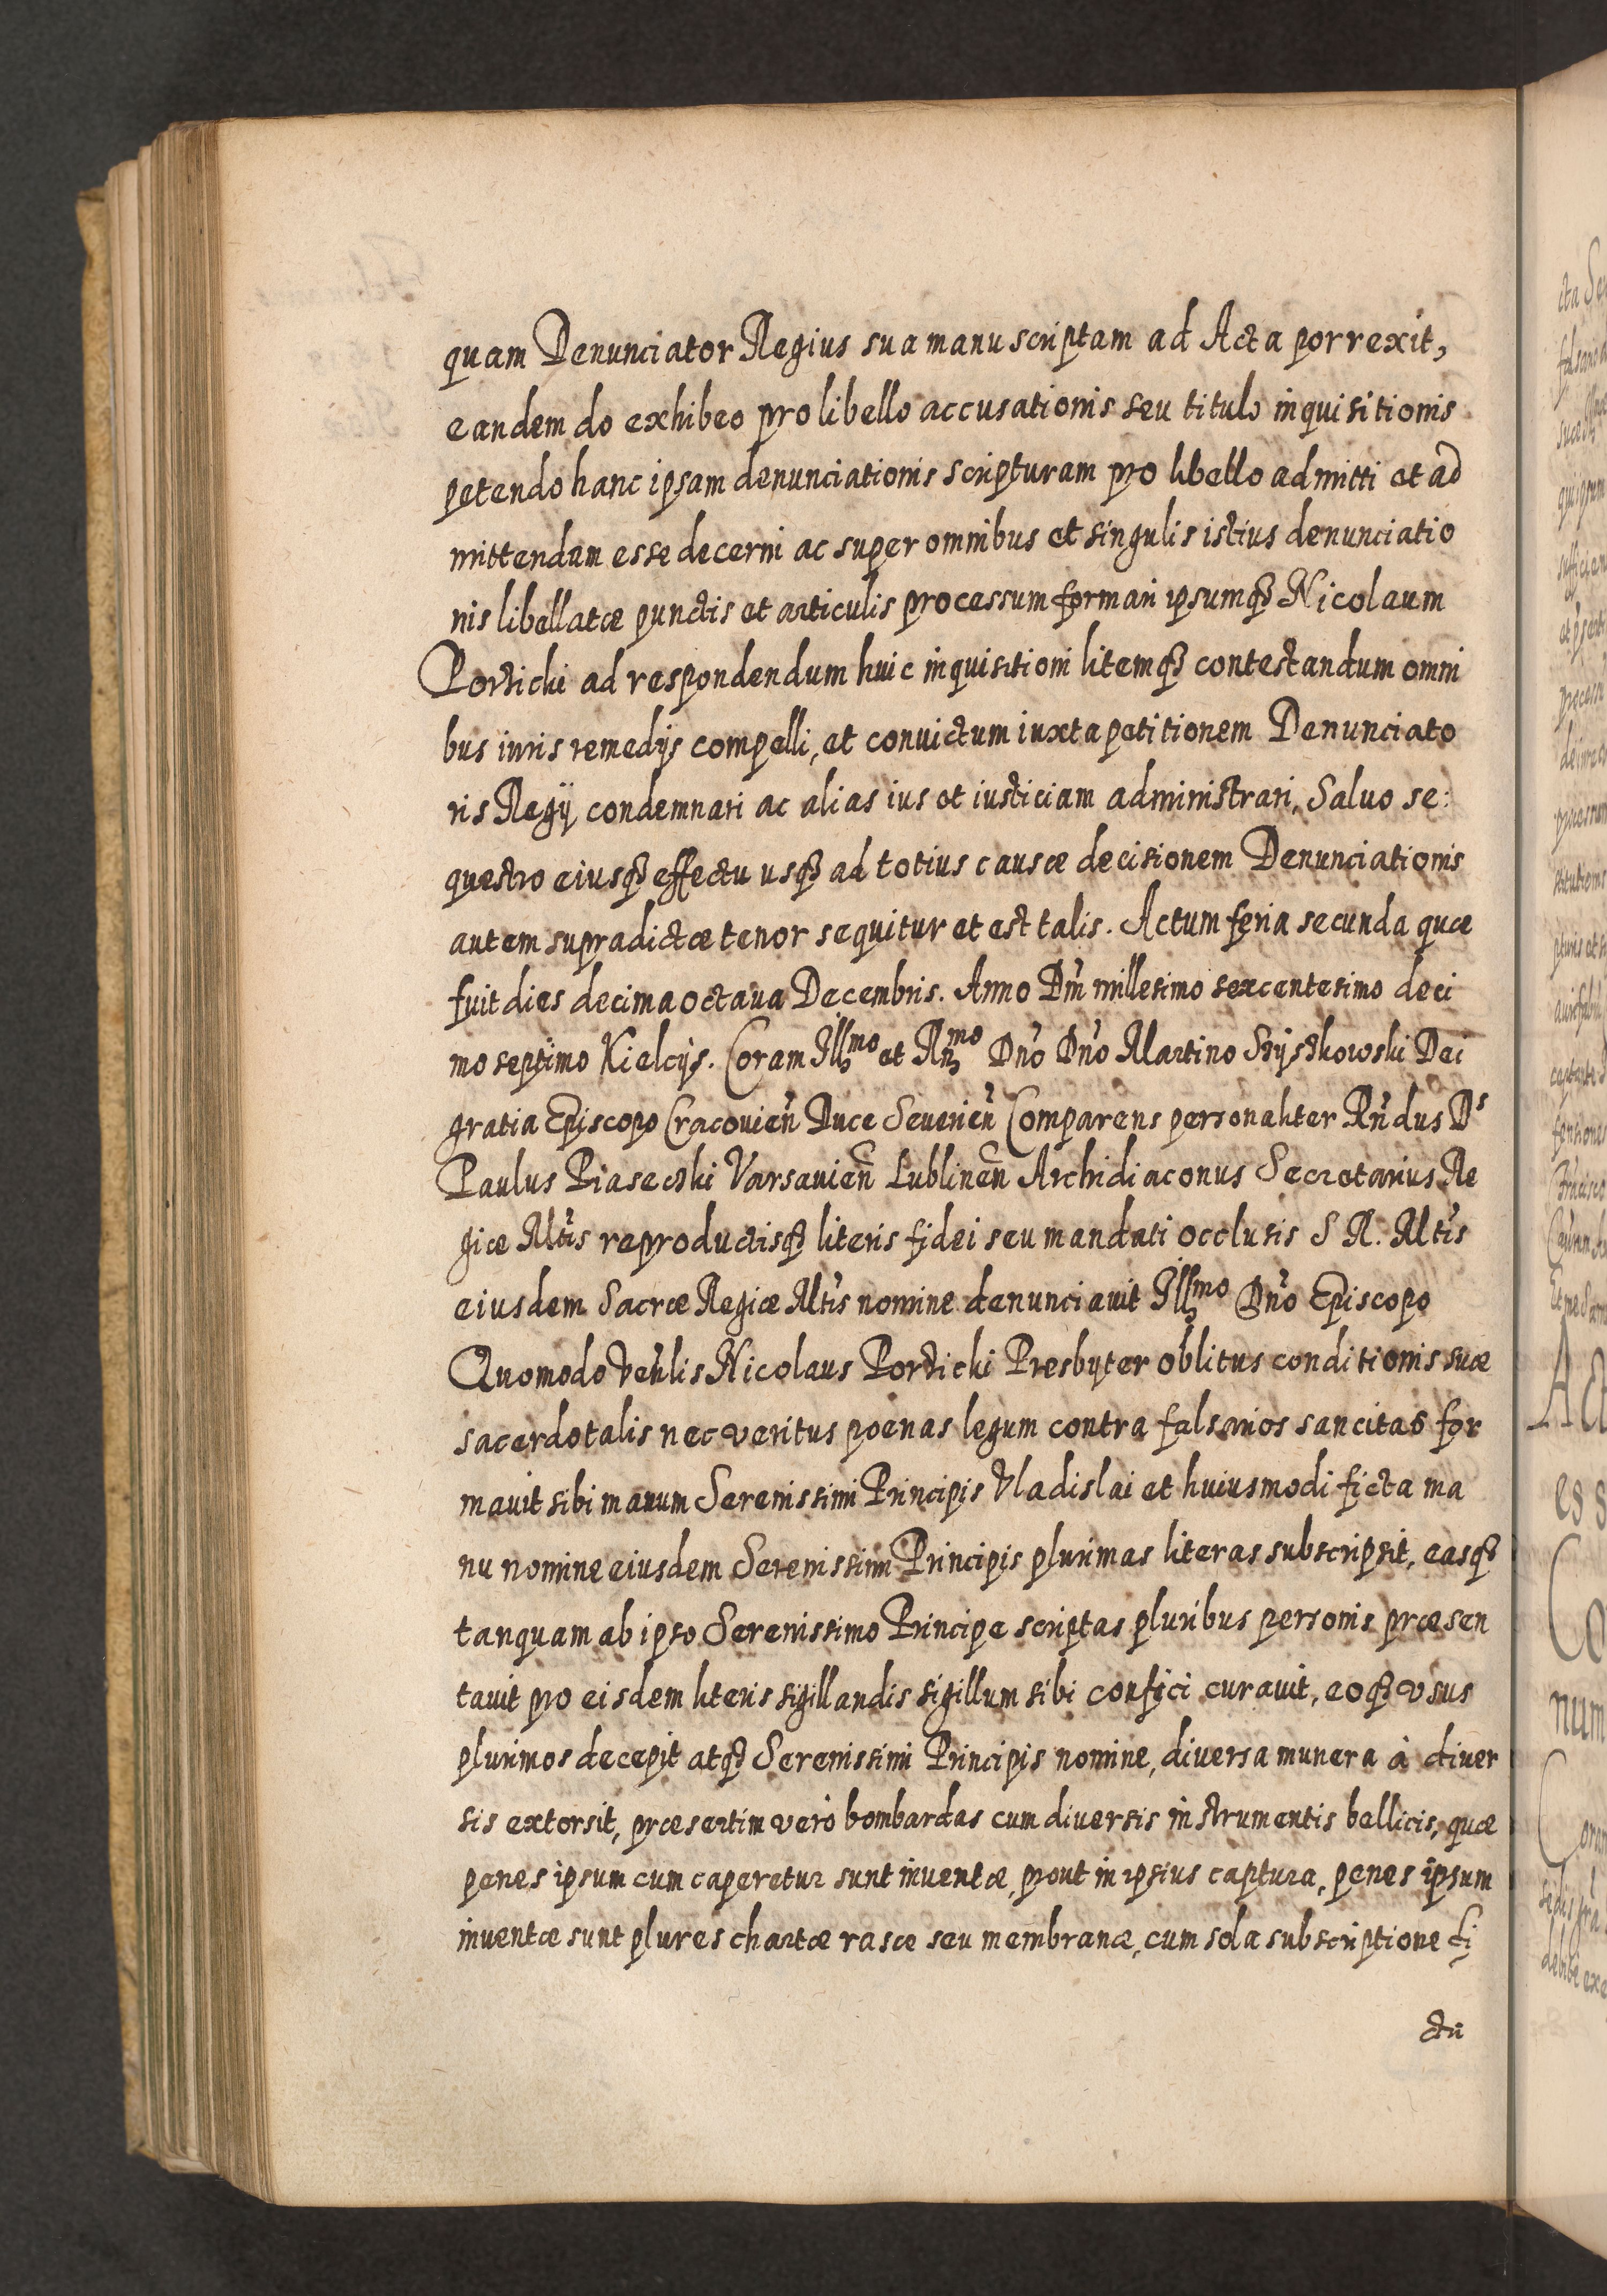 quam Denunciator Regius sua manu scriptam ad Acta porrexit,
eandem do exhibeo pro libello accusationis seu titulo inquisitionis
petendo hanc ipsam denunciationis scripturam pro libello admitti et ad
mittendam esse decerni ac super omnibus et singulis istius denunciatio
nis libellatæ punctis et articulis processum formari ipsumq₃ Nicolaum
ad respondendum huic inquisitioni litemq₃ contestandum omni
bus iuris remedijs compelli, et convictum iuxta petitionem Denunciato
ris Regij condemnari ac alias ius et iusticiam administrari, Saluo se:
questro eiusq₃ effectu usq₃ ad totius causæ decisionem Denunciationis
autem supradictæ tenor sequitur et est talis. Actum feria secunda quæ
fuit dies decima octaua Decembris. Anno Dñi millesimo sexcentesimo deci
mo septimo Kielcijs. Coram Illmo et Rmo Dño Dño Martino Szyszkowski Dei
gratia Episcopo Cracovieñ Duce Severieñ Comparens personaliter Rñdus Ds
Paulus Piasecki Varsavieñ Lublineñ Archidiaconus Secretarius Re
giæ Mtis reproductisq₃ literis fidei seu mandati occlusis S R. Mtis
eiusdem Sacræ Regiæ Mtis nomine denunciauit Illmo Dño Episcopo
Quomodo Veñlis Nicolaus Presbyter oblitus conditionis suæ
sacerdotalis nec veritus poenas legum contra falsarios sancitas for
mauit sibi manum Serenissimi Principis Vladislai et huiusmodi ficta ma
nu nomine eiusdem Serenissimi Principis plurimas literas subscripsit, easq₃
tanquam ab ipso Serenissimo Principe scriptas pluribus personis præsen
tauit pro eisdem literis sigillandis sigillum sibi confici curauit, eoq₃ vsus
plurimos decepit atq₃ Serenissimi Principis nomine, diversa munera à diver
sis extorsit, præsertim verò bombardas cum diversis instrumentis bellicis, quæ
penes ipsum cum caperetur sunt inventæ, prout in ipsius captura, penes ipsum
inventæ sunt plures chartæ rasæ seu membranæ, cum sola subscriptione fi